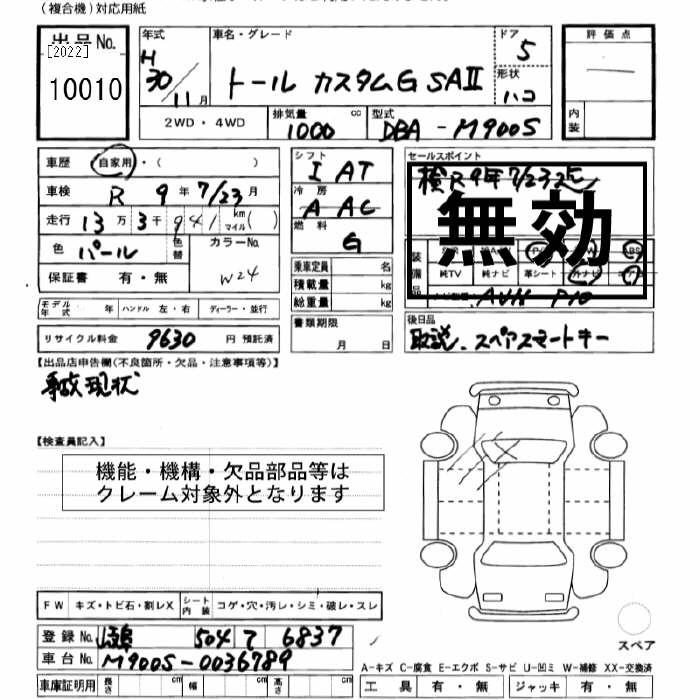 (複合機)対応用紙
出品No.
[2022]
10010
年式
H
30
11月
車名・グレード
トール カスタムG SAII
ドア
5
形状
ハコ
2WD・4WD
排気量
1000 cc
型式
DBA - M900S
評価点
内装
車歴 自家用・( )
車検 R 9年 7/23月
走行 13万 3千 941 km マイル( )
色 パール 色替
カラーNo.
W24
保証書 有・無
シフト
I AT
冷房
A AC
燃料
G
セールスポイント
検R9年7/23迄
無効
装備品
純TV 純ナビ 革シート 外ナビ
AVN P10
乗車定員 名
積載量 kg
総重量 kg
モデル年式 年 ハンドル 左・右 ディーラー・並行
リサイクル料金 9630 円 預託済
書類期限
月 日
後日品
取説、スペアスマートキー
【出品店申告欄(不良箇所・欠品・注意事項等)】
事故現状
【検査員記入】
機能・機構・欠品部品等は
クレーム対象外となります
FW キズ・トビ石・割レX シート内装 コゲ・穴・汚レ・シミ・破レ・スレ
登録No. 504 て 6837
車台No. M900S-0036789
車庫証明用 長さ cm 幅 cm 高さ cm
スペア
A-キズ C-腐食 E-エクボ S-サビ U-凹ミ W-補修 XX-交換済
工具 有・無 ジャッキ 有・無